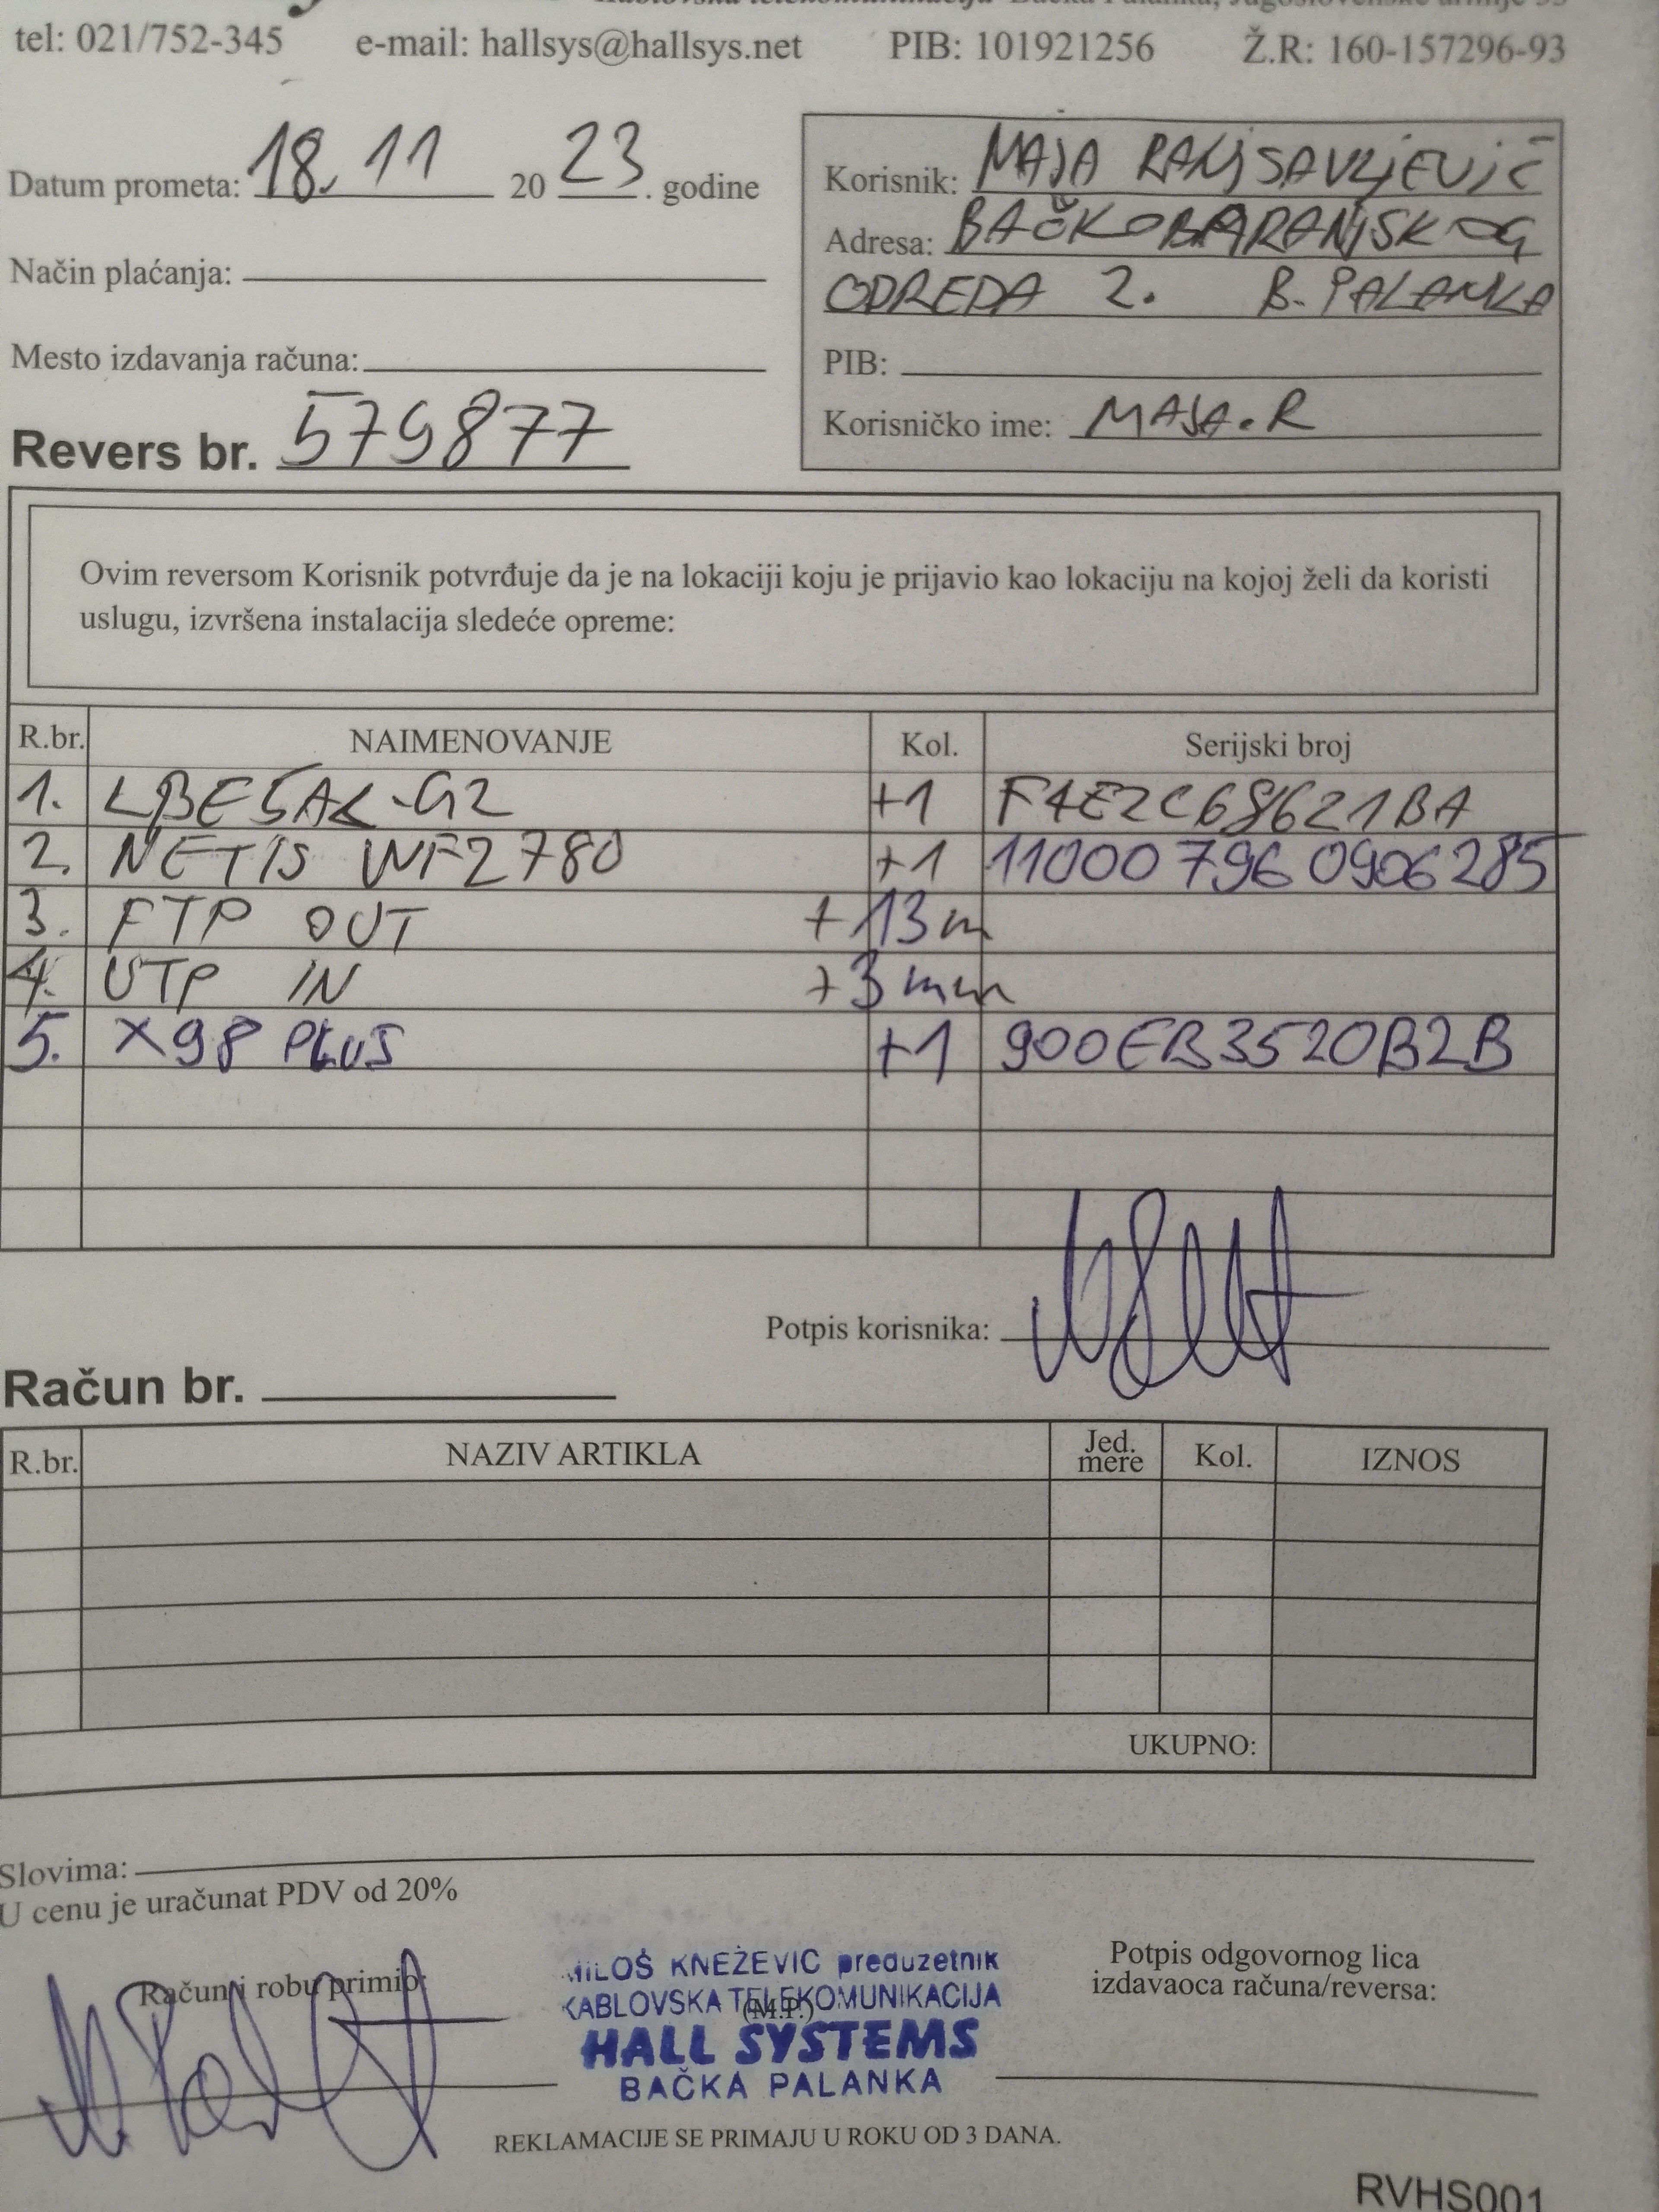 Kablovska telekomunikacija Bačka Palanka, Jugoslovenske armije
tel: 021/752-345 e-mail: hallsys@hallsys.net PIB: 101921256 Ž.R: 160-157296-93
Datum prometa: 18. 11 20 23. godine
Način plaćanja:
Mesto izdavanja računa:
Revers br. 579877
Korisnik: MAJA
Adresa: BAČKOBARANJSKOG
ODREDA 2. B. PALANKA
PIB:
Korisničko ime: MAJA.R
Ovim reversom Korisnik potvrđuje da je na lokaciji koju je prijavio kao lokaciju na kojoj želi da koristi
uslugu, izvršena instalacija sledeće opreme:
R.br. NAIMENOVANJE Kol. Serijski broj
1. LBE5AC-G2 +1 F4E2C68621BA
2. NETIS WF2780 +1 110007960906285
3. FTP OUT +13m
4. UTP IN +3
5. X98 PLUS +1 900EB3520B2B
Potpis korisnika:
Račun br.
R.br. NAZIV ARTIKLA Jed. mere Kol. IZNOS
UKUPNO:
Slovima:
U cenu je uračunat PDV od 20%
Račun i robu primio:
MILOŠ KNEŽEVIĆ preduzetnik
KABLOVSKA TELEKOMUNIKACIJA
(M.P.)
HALL SYSTEMS
BAČKA PALANKA
Potpis odgovornog lica
izdavaoca računa/reversa:
REKLAMACIJE SE PRIMAJU U ROKU OD 3 DANA.
RVHS001